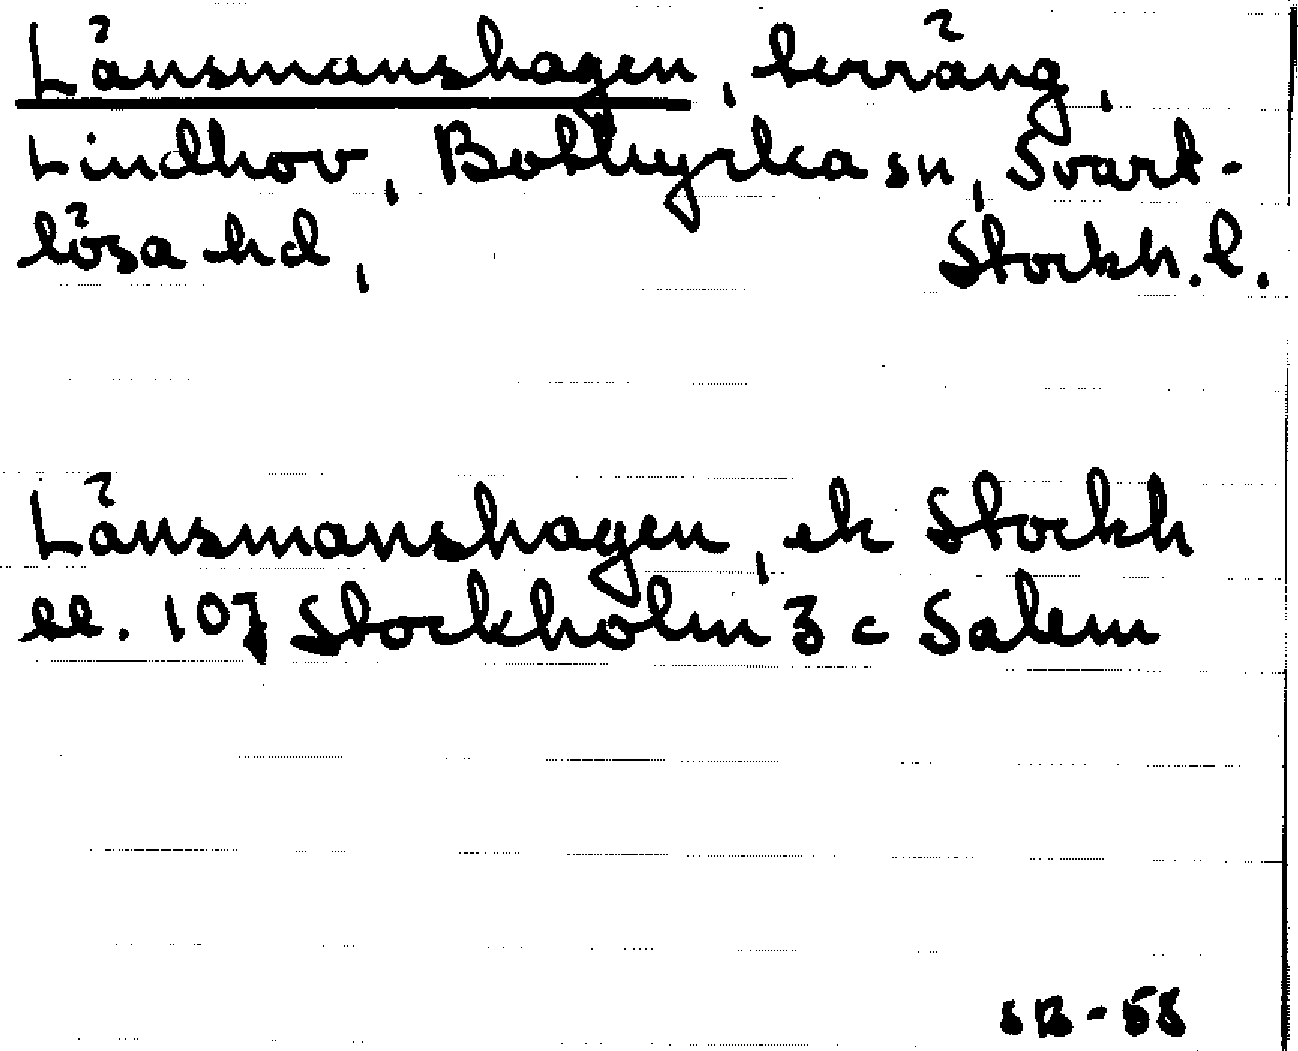 Länsmanshagen, terräng,
Lindhov, Botkyrka sn, Svart-
lösa hd, Stockh. l.
Länsmanshagen, ek Stockh
ll. 107 Stockholm 3 c Salem
SB-58